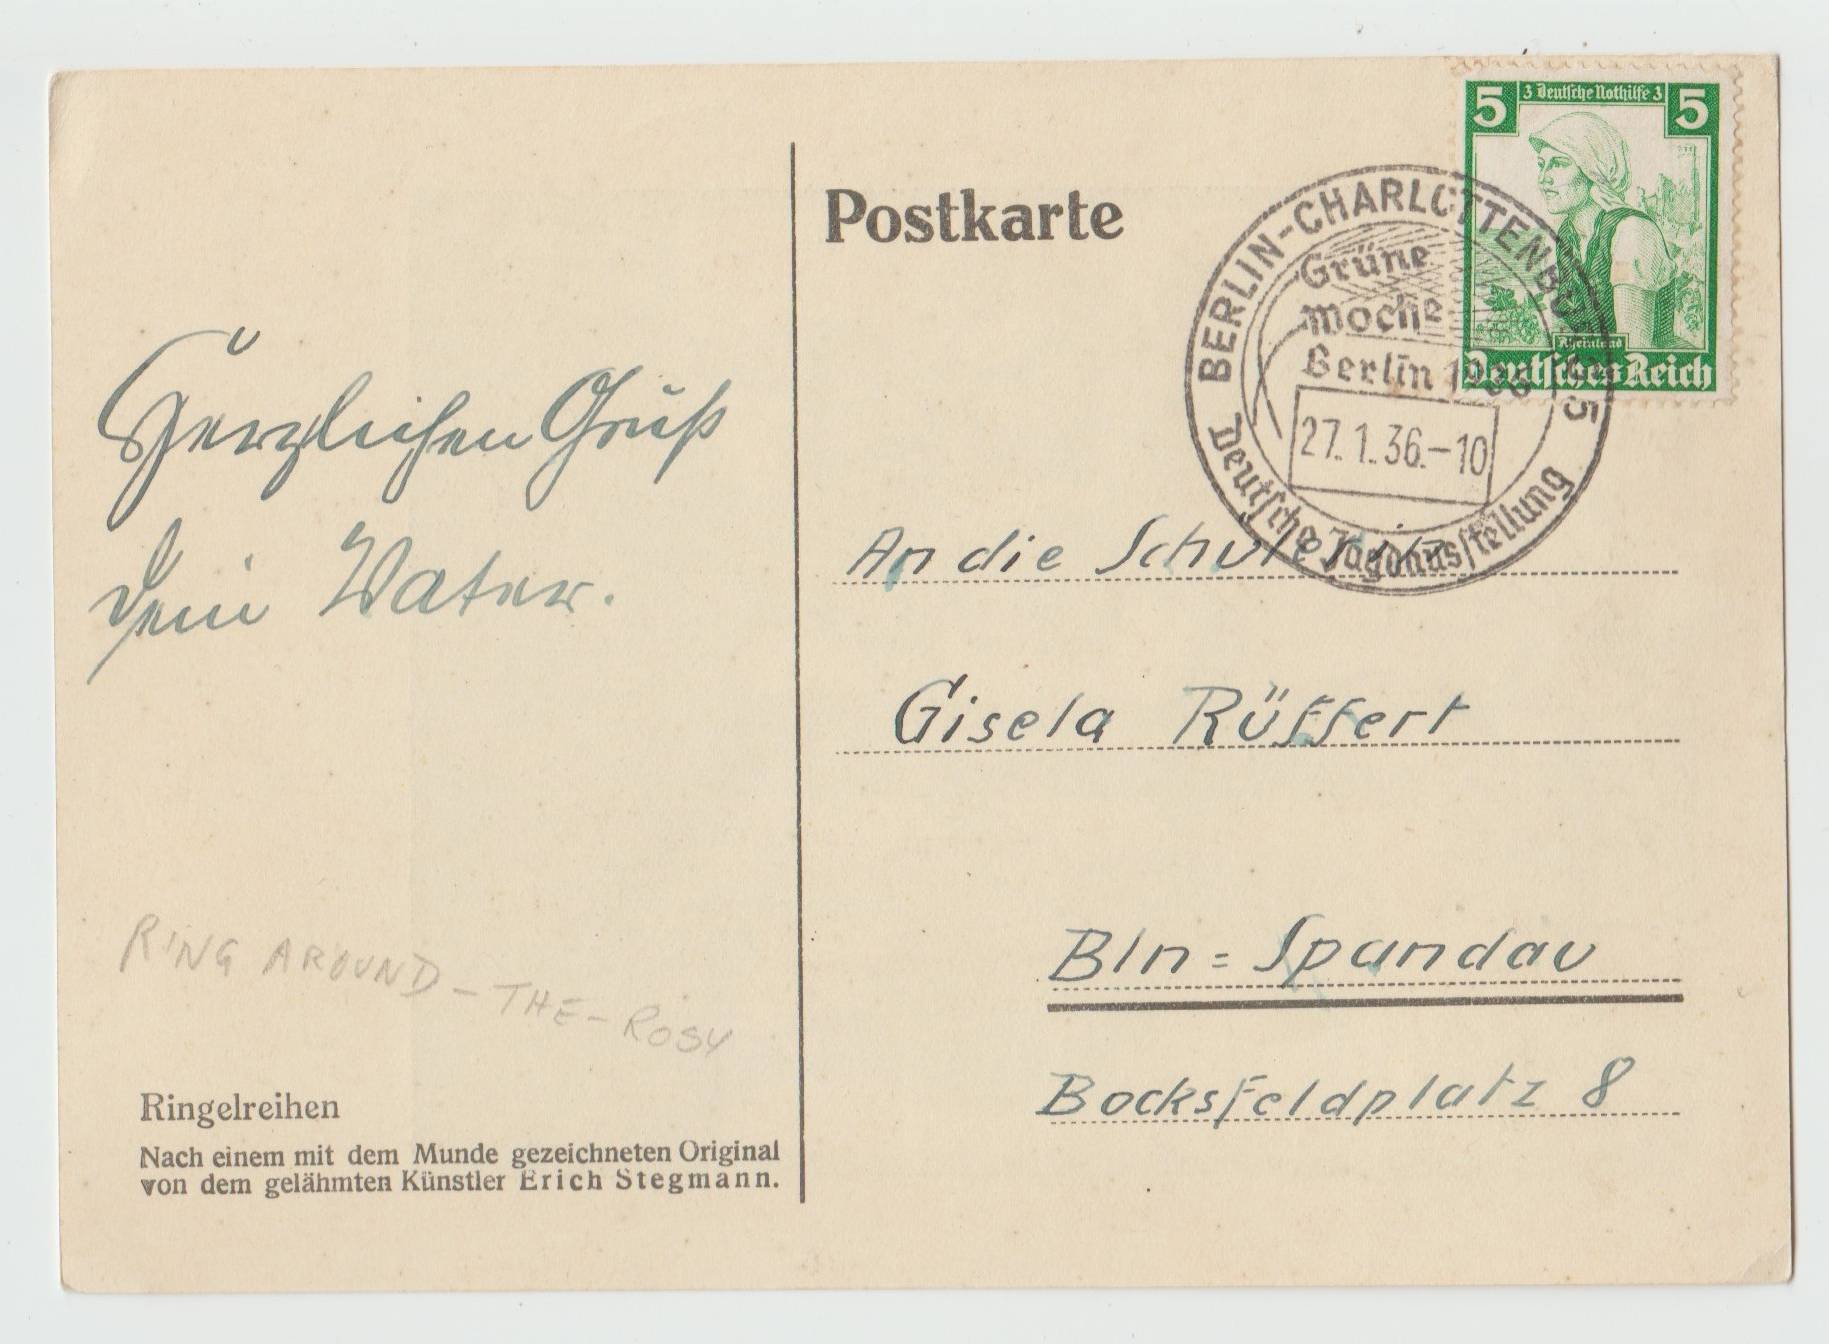 5 3 Deutsche Nothilfe 3 5
Rheinland
Deutsches Reich
Postkarte
BERLIN-CHARLOTTENBURG 5
Grüne
Woche
Berlin 1936
27.1.36.-10
Deutsche Jagdausstellung
Herzlichen Gruß
Dein Vater.
An die Schülerin
Gisela Rüffert
Bln = Spandau
Bocksfeldplatz 8
RING AROUND-THE-ROSY
Ringelreihen
Nach einem mit dem Munde gezeichneten Original
von dem gelähmten Künstler Erich Stegmann.